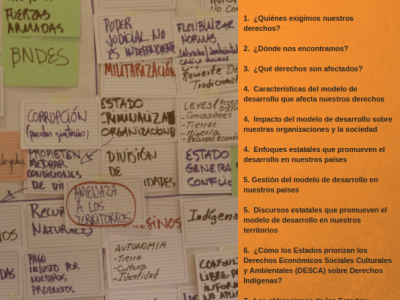 FUERZAS
ARMADAS
BNDES
PODER
JUDICIAL NO
ES INDEPENDIENTE
MILITARIZACIÓN
FLEXIBILIZAR
NORMAS
CORRUPCIÓN
ESTADO
CRIMINALIZA
ORGANIZACIONES
LEYES
- Concesiones
- Tierras
- Minería
PROMETEN
MEJORAR
CONDICIONES
DE
DIVISIÓN
DE
IDADES
ESTADO
GENERA
CONFLIC
AMENAZA
A LOS
TERRITORIOS
RECUR
NATURALES
SINOS
Indígena
AUTONOMIA
- Tierra
- Cultura
- Identidad
PAGO
INJUSTO POR
NUESTROS
PRODUCTOS
CONSUL
LIBRE, P
INFOR
1. ¿Quiénes exigimos nuestros
derechos?
2. ¿Dónde nos encontramos?
3. ¿Qué derechos son afectados?
4. Características del modelo de
desarrollo que afecta nuestros derechos
4. Impacto del modelo de desarrollo sobre
nuestras organizaciones y la sociedad
4. Enfoques estatales que promueven el
desarrollo en nuestros países
5. Gestión del modelo de desarrollo en
nuestros países
5. Discursos estatales que promueven el
modelo de desarrollo en nuestros
territorios
6. ¿Cómo los Estados priorizan los
Derechos Económicos Sociales Culturales
y Ambientales (DESCA) sobre Derechos
Indígenas?